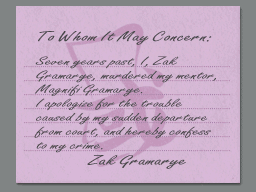 To Whom It May Concern:
Seven years past, I, Zak
Gramarye, murdered my mentor,
Magnifi Gramarye.
I apologize for the trouble
caused by my sudden departure
from court, and hereby confess
to my crime.
Zak Gramarye